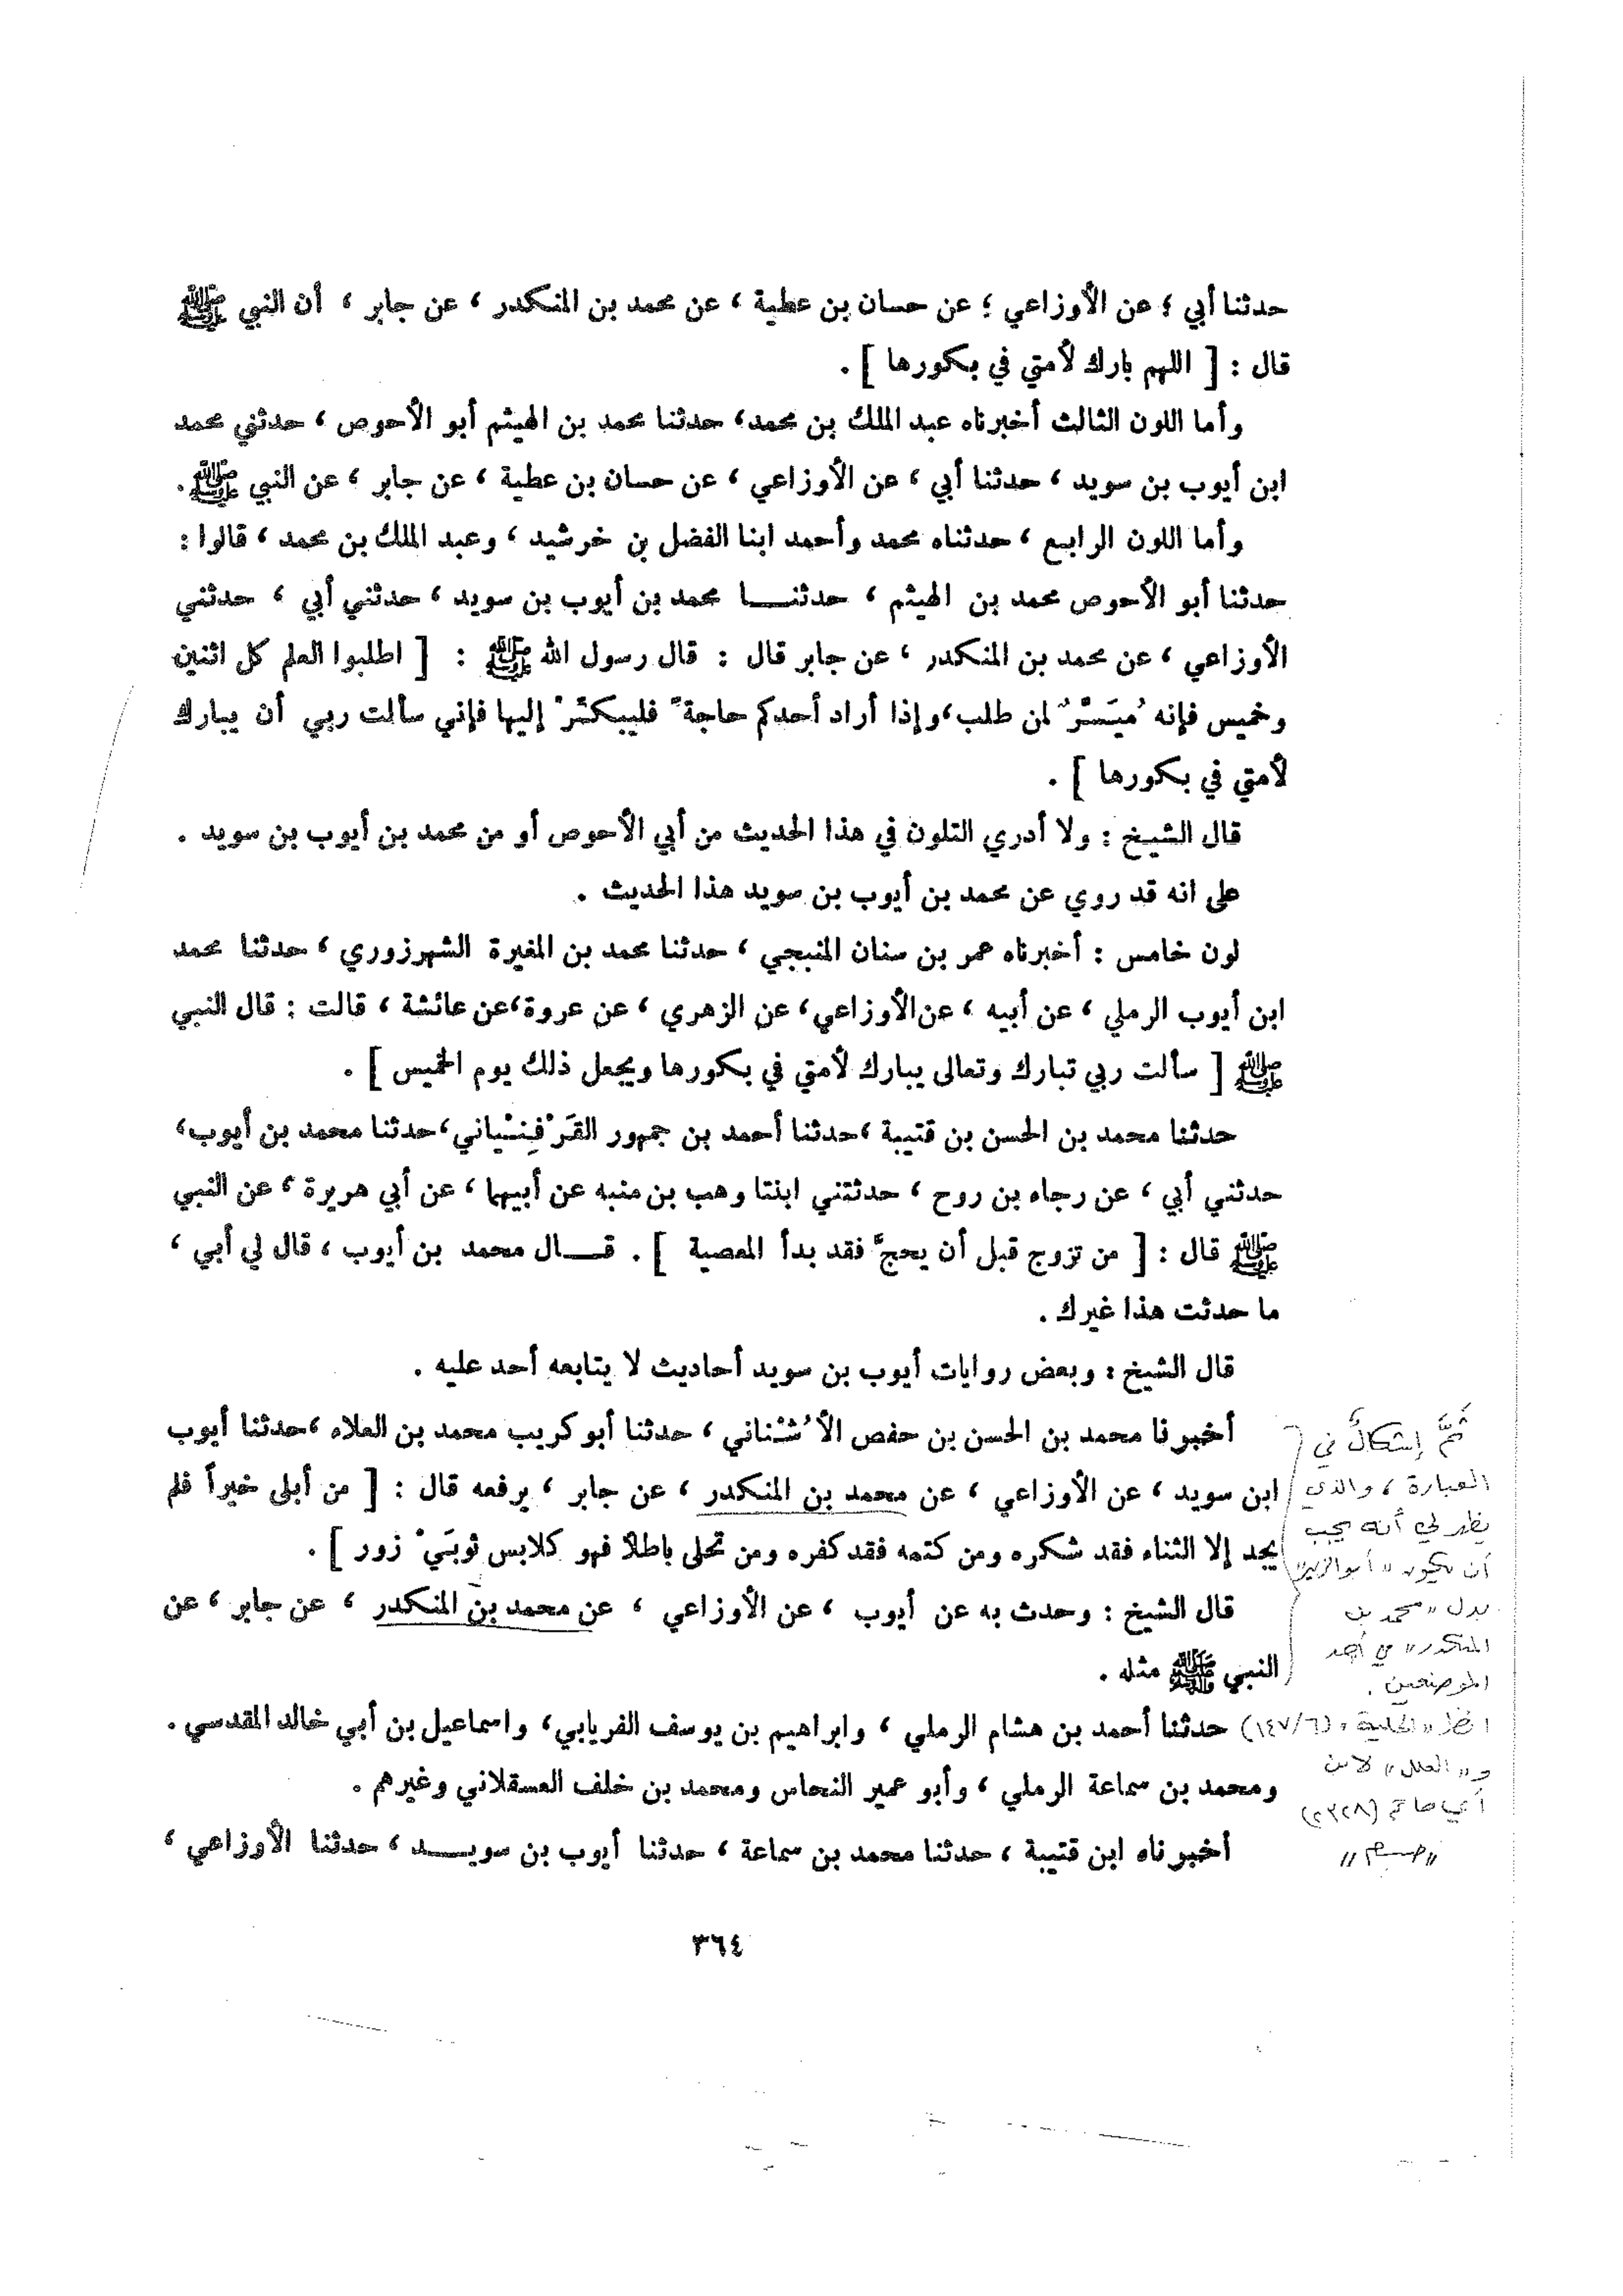 حدثنا أبي ؛ عن الأوزاعي ؛ عن حسان بن عطية ، عن محمد بن المنكدر ، عن جابر ، أن النبي ﷺ
قال : [ اللهم بارك لأمتي في بكورها ] .
وأما اللون الثالث أخبرناه عبد الملك بن محمد، حدثنا محمد بن الهيثم أبو الأحوص ، حدثني محمد
ابن أيوب بن سويد ، حدثنا أبي ، عن الأوزاعي ، عن حسان بن عطية ، عن جابر ، عن النبي ﷺ.
وأما اللون الرابع ، حدثناه محمد وأحمد ابنا الفضل بن خرشيد ، وعبد الملك بن محمد ، قالوا :
حدثنا أبو الأحوص محمد بن الهيثم ، حدثنـــا محمد بن أيوب بن سويد ، حدثني أبي ، حدثني
الأوزاعي ، عن محمد بن المنكدر ، عن جابر قال : قال رسول الله ﷺ : [ اطلبوا العلم كل اثنين
وخميس فإنه مُيَسَّرٌ لمن طلب،وإذا أراد أحدكم حاجةً فليبكِّرْ إليها فإني سألت ربي أن يبارك
لأمتي في بكورها ] .
قال الشيخ : ولا أدري التلون في هذا الحديث من أبي الأحوص أو من محمد بن أيوب بن سويد .
على انه قد روي عن محمد بن أيوب بن سويد هذا الحديث .
لون خامس : أخبرناه عمر بن سنان المنبجي ، حدثنا محمد بن المغيرة الشهرزوري ، حدثنا محمد
ابن أيوب الرملي ، عن أبيه ، عن الأوزاعي، عن الزهري ، عن عروة،عن عائشة ، قالت : قال النبي
ﷺ [ سألت ربي تبارك وتعالى يبارك لأمتي في بكورها ويجعل ذلك يوم الخميس ] .
حدثنا محمد بن الحسن بن قتيبة ،حدثنا أحمد بن جمهور القَرْفِنْياني،حدثنا محمد بن أيوب،
حدثني أبي ، عن رجاء بن روح ، حدثتني ابنتا وهب بن منبه عن أبيهما ، عن أبي هريرة ، عن النبي
ﷺ قال : [ من تزوج قبل أن يحجَّ فقد بدأ المعصية ] . قـــال محمد بن أيوب ، قال لي أبي ،
ما حدثت هذا غيرك .
قال الشيخ : وبعض روايات أيوب بن سويد أحاديث لا يتابعه أحد عليه .
أخبرنا محمد بن الحسن بن حفص الأُشْناني ، حدثنا أبو كريب محمد بن العلاء ،حدثنا أيوب
ابن سويد ، عن الأوزاعي ، عن محمد بن المنكدر ، عن جابر ، يرفعه قال : [ من أبلى خيراً فلم
يجد إلا الثناء فقد شكره ومن كتمه فقد كفره ومن تحلى باطلاً فهو كلابس ثوبَيْ زور ] .
قال الشيخ : وحدث به عن أيوب ، عن الأوزاعي ، عن محمد بن المنكدر ، عن جابر ، عن
النبي ﷺ مثله .
حدثنا أحمد بن هشام الرملي ، وابراهيم بن يوسف الفريابي، واسماعيل بن أبي خالد المقدسي .
ومحمد بن سماعة الرملي ، وأبو عمير النحاس ومحمد بن خلف العسقلاني وغيرهم .
أخبرناه ابن قتيبة ، حدثنا محمد بن سماعة ، حدثنا أيوب بن سويـــد ، حدثنا الأوزاعي ،
ثَمَّ إشكالٌ في
العبارة ، والذي
يظهر لي أنه يجب
أن يكون «أبو الزبير»
بدل «محمد بن
المنكدر» في أحد
الموضعين .
انظر «الحلية» (٦/١٤٧)
و«العلل» لابن
أبي حاتم (٢٣٢٨)
٣٦٤